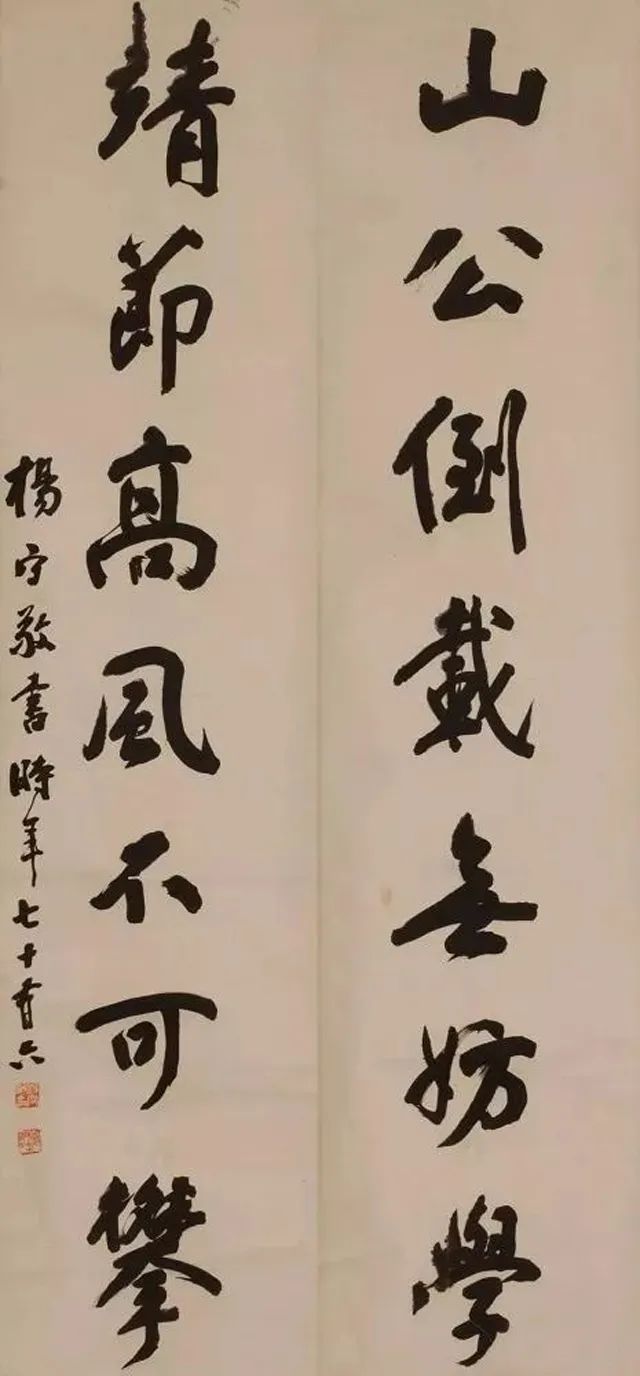 山公倒載無妨學
靖節高風不可攀
楊守敬書時年七十有六